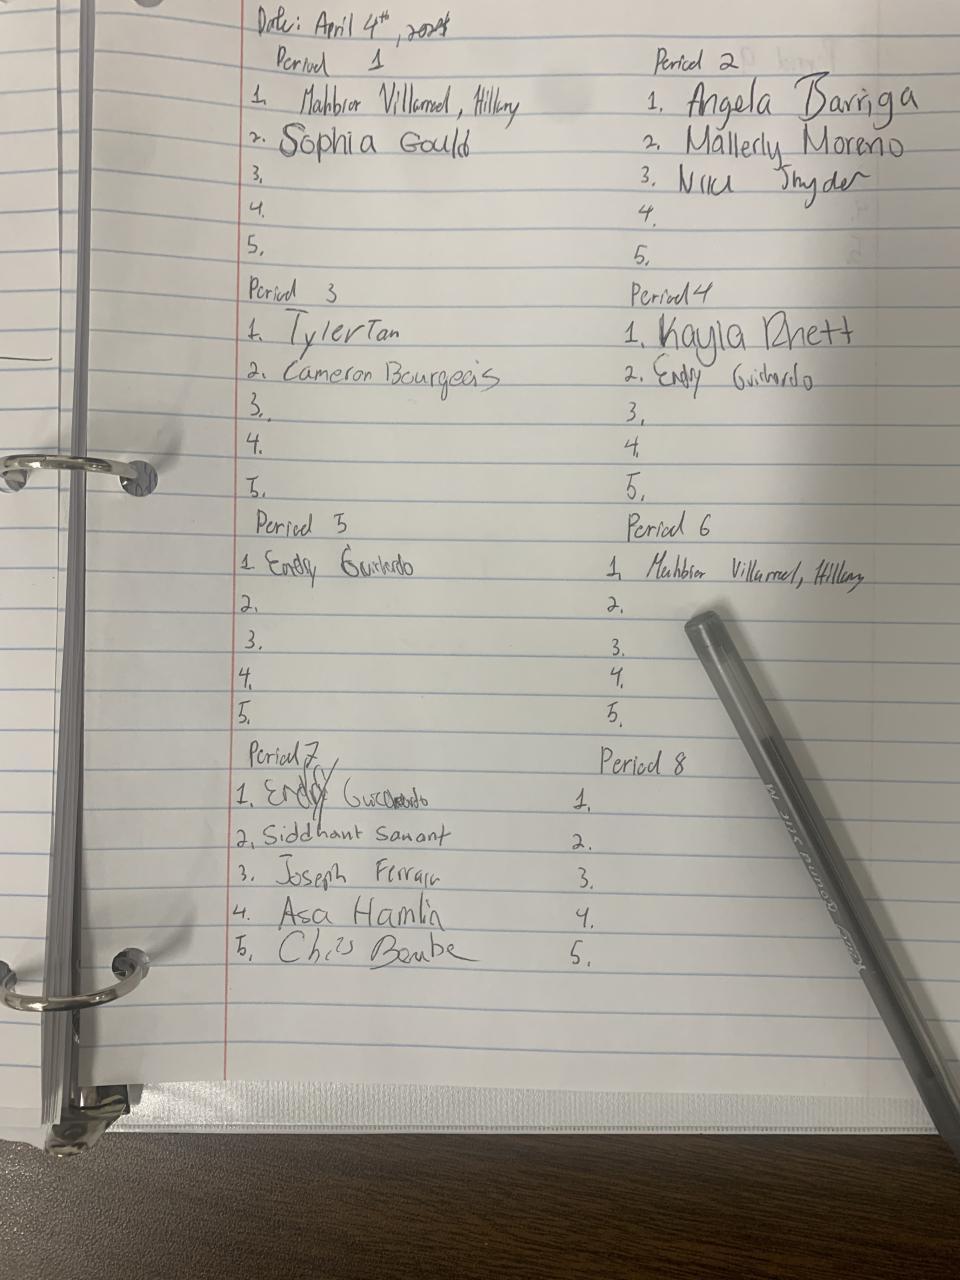 Date: April 4th, 2024
Period 1
1. Mahbior Villarreal, Hillary
2. Sophia Gould
3.
4.
5.
Period 2
1. Angela Barriga
2. Mallerly Moreno
3. Snyder
4.
5.
Period 3
1. Tyler Tan
2. Cameron Bourgeois
3.
4.
5.
Period 4
1. Kayla Rhett
2. Endry Guichardo
3.
4.
5.
Period 5
1 Endry Guichardo
2.
3.
4.
5.
Period 6
1. Mahbior Villarreal, Hillary
2.
3.
4.
5.
Period 7
1. Endry Guichardo
2. Siddhant Sawant
3. Joseph Ferrara
4. Asa Hamlin
5. Chris Berube
Period 8
1.
2.
3.
4.
5.